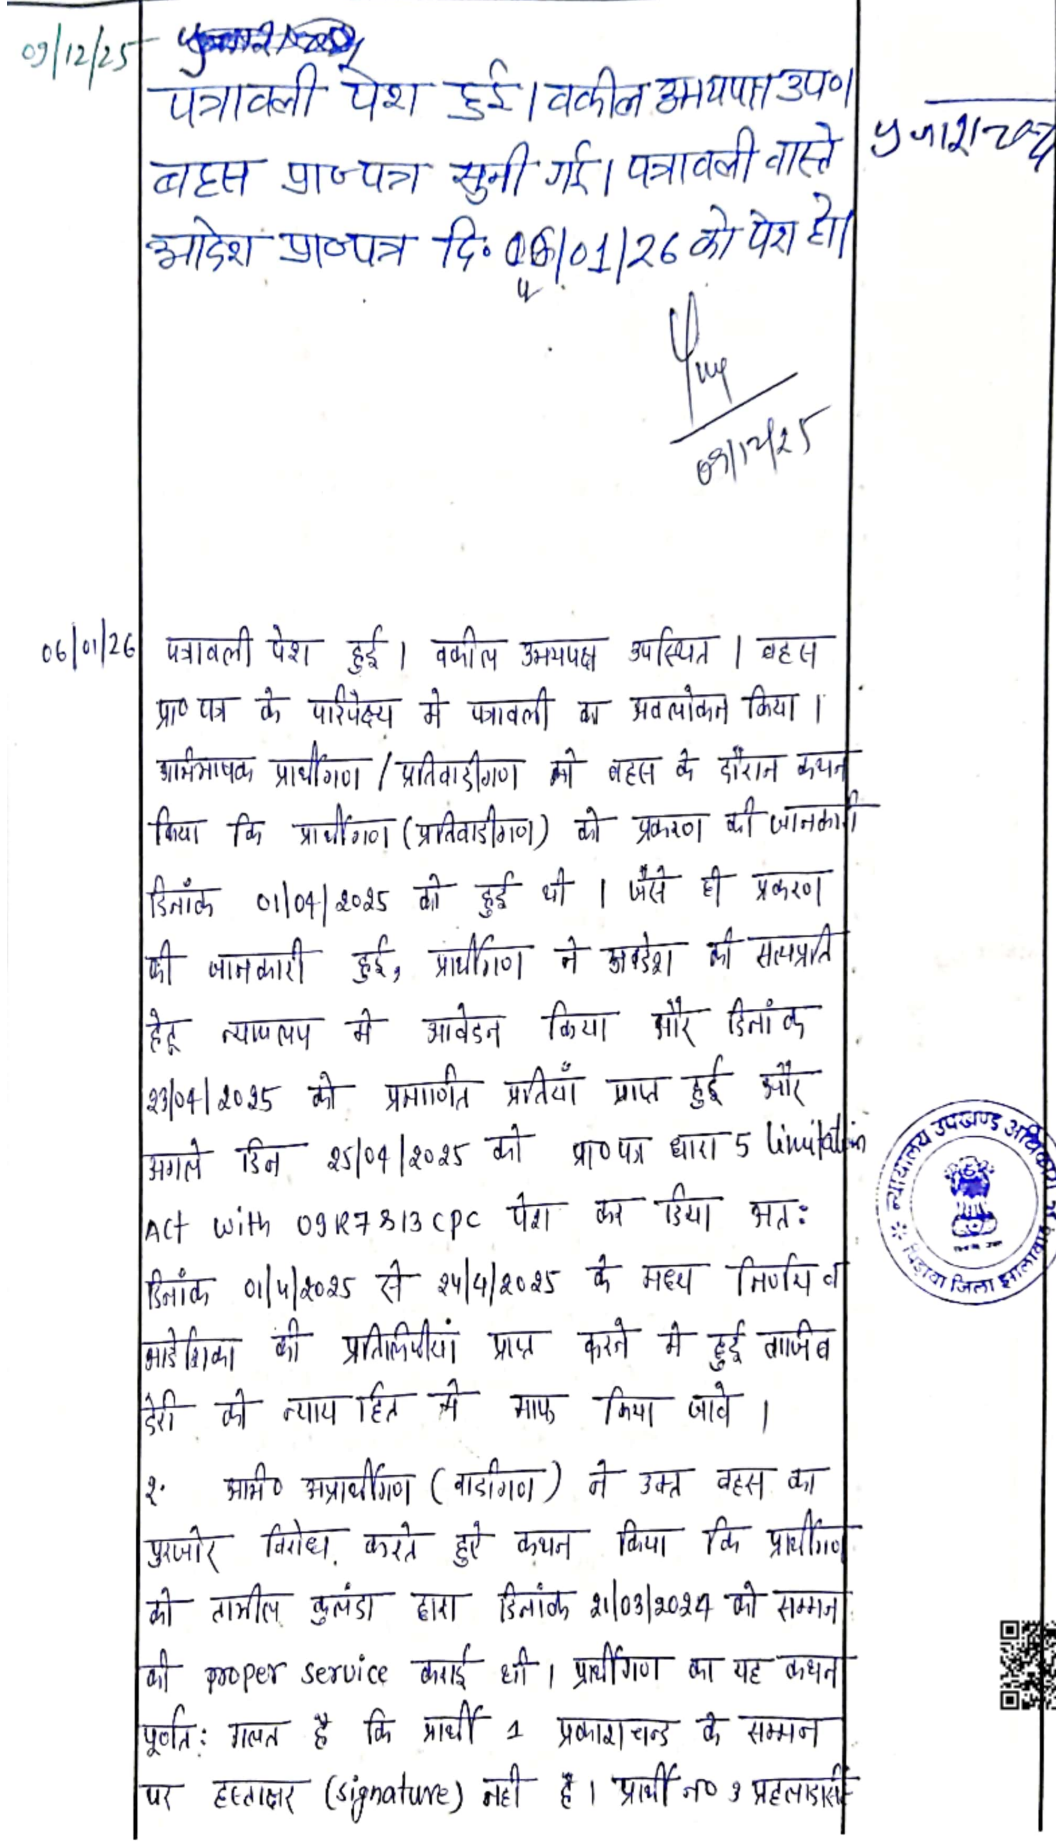 09/12/25
पत्रावली पेश हुई। वकील उभयपक्ष उप०।
बहस प्रा०पत्र सुनी गई। पत्रावली वास्ते
आदेश प्रा०पत्र दि० 06/01/26 को पेश हो।
09/12/25
06/01/26 पत्रावली पेश हुई। वकील उभयपक्ष उपस्थित। बहस
प्रा० पत्र के परिपेक्ष्य मे पत्रावली का अवलोकन किया।
अभिभाषक प्रार्थीगण / प्रतिवादीगण की बहस के दौरान कथन
किया कि प्रार्थीगण (प्रतिवादीगण) को प्रकरण की जानकारी
दिनाँक 01/04/2025 को हुई थी। जैसे ही प्रकरण
की जानकारी हुई, प्रार्थीगण ने आदेश की सत्यप्रति
हेतू न्यायलय मे आवेदन किया और दिनांक
23/04/2025 को प्रमाणित प्रतियाँ प्राप्त हुई और
अगले दिन 25/04/2025 को प्रा०पत्र धारा 5 limitation
Act with O9R7 & 13 CPC पेश कर दिया अत:
दिनाँक 01/4/2025 से 24/4/2025 के मध्य निर्णय व
आदेशिका की प्रतिलिपीयां प्राप्त करने मे हुई वाजिब
देरी को न्याय हित मे माफ किया जावे।
2. अभि० अप्रार्थीगण (वादीगण) ने उक्त बहस का
पुरजोर विरोध करते हुऐ कथन किया कि प्रार्थीगण
को तामील कुलंदा द्वारा दिनांक 21/03/2024 को सम्मन
की proper service कराई थी। प्रार्थीगण का यह कथन
पूर्णत: गलत है कि प्रार्थी 1 प्रकाशचन्द के सम्मन
पर हस्ताक्षर (signature) नही है। प्रार्थी न० 3 प्रहलादसिंह
न्यायालय उपखण्ड अधिकारी
पिड़ावा जिला झालावाड़